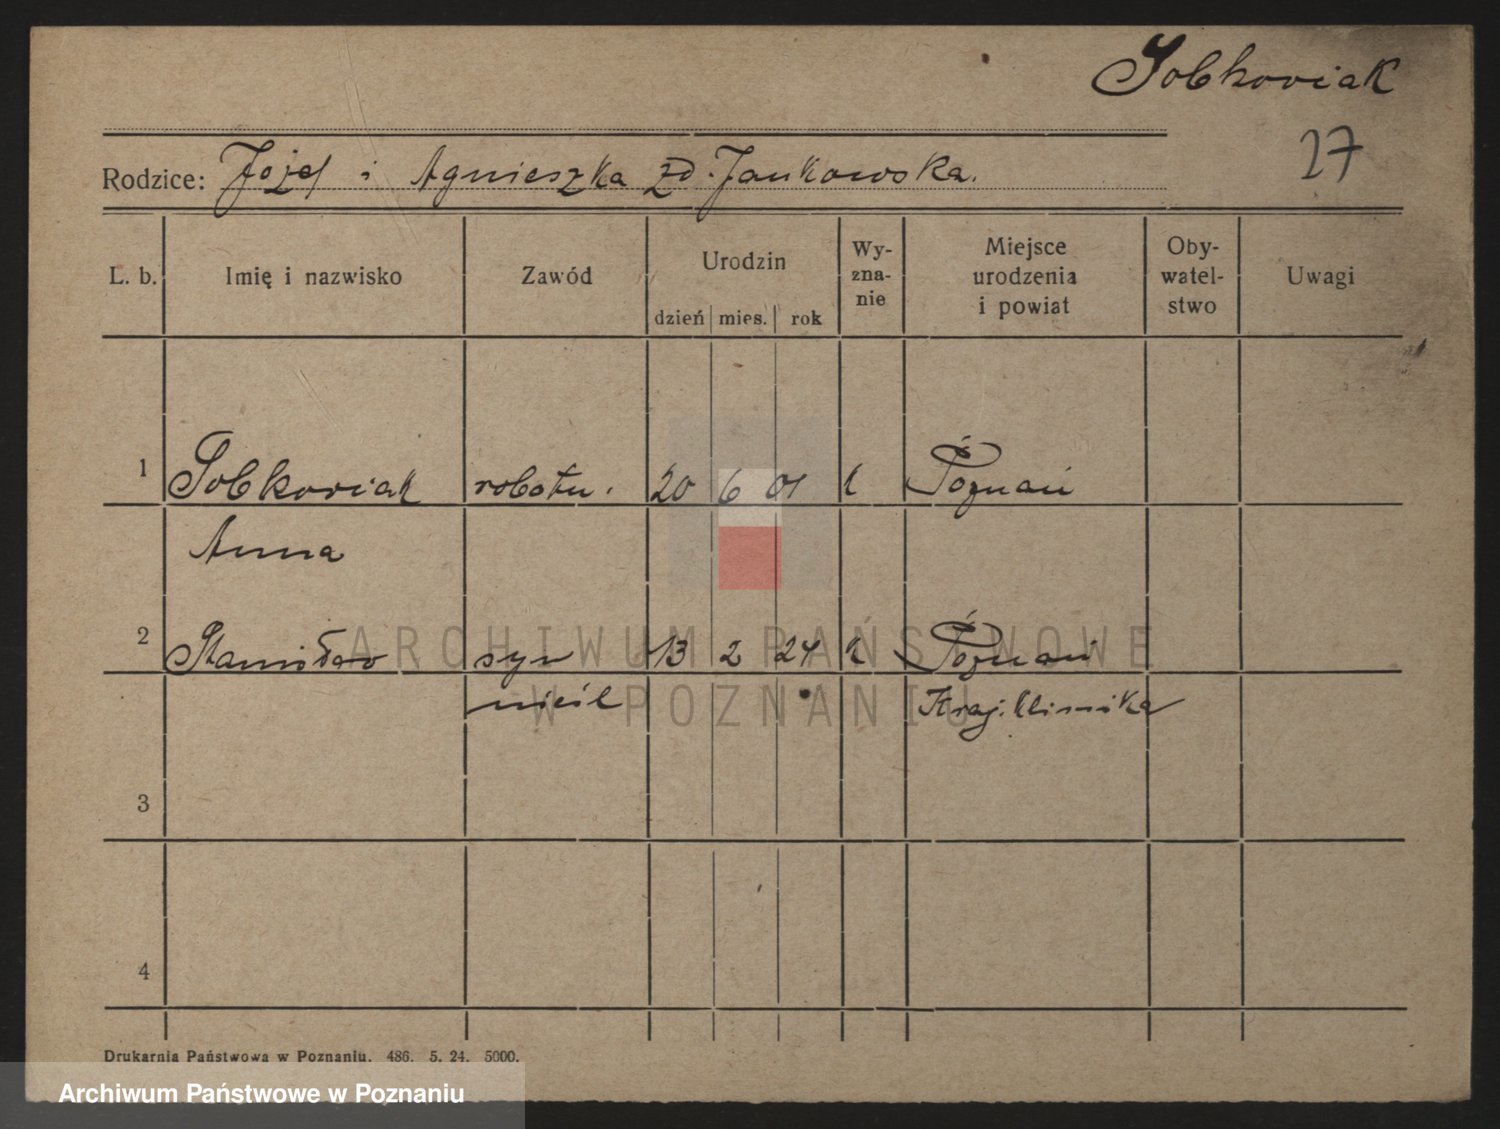 Sobkowiak
27
Rodzice: Józef i Agnieszka zd. Jankowska.
L. b. Imię i nazwisko Zawód Urodzin dzień mies. rok Wy-zna-nie Miejsce urodzenia i powiat Oby-watel-stwo Uwagi
1 Sobkowiak robotn. 20 6 01 k Poznań
Anna
2 Stanisław syn 13 2 24 k Poznań
nieśl Kraj. Klinika
3
4
Drukarnia Państwowa w Poznaniu. 486. 5. 24. 5000.
ARCHIWUM PAŃSTWOWE
W POZNANIU
Archiwum Państwowe w Poznaniu